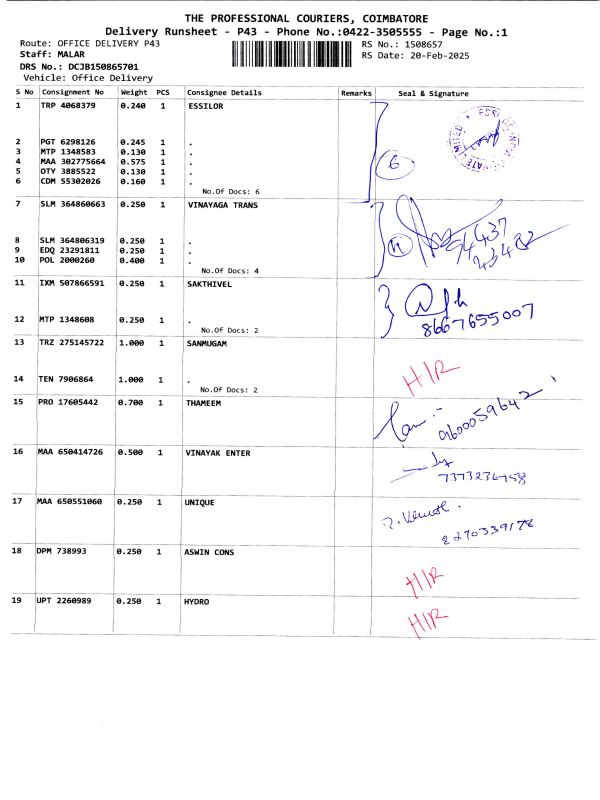 THE PROFESSIONAL COURIERS, COIMBATORE
Delivery Runsheet - P43 - Phone No.:0422-3505555 - Page No.:1
Route: OFFICE DELIVERY P43
RS No.: 1508657
Staff: MALAR
RS Date: 20-Feb-2025
DRS No.: DCJB150865701
Vehicle: Office Delivery
S No Consignment No Weight PCS Consignee Details Remarks Seal & Signature
1 TRP 4068379 0.240 1 ESSILOR
2 PGT 6298126 0.245 1 .
3 MTP 1348583 0.130 1 .
4 MAA 302775664 0.575 1 .
5 OTY 3885522 0.130 1 .
6 CDM 55302026 0.160 1 .
6
No.Of Docs: 6
7 SLM 364860663 0.250 1 VINAYAGA TRANS
8 SLM 364806319 0.250 1 .
9 EDQ 23291811 0.250 1 .
10 POL 2000260 0.400 1 .
No.Of Docs: 4
11 IXM 507866591 0.250 1 SAKTHIVEL
12 MTP 1348608 0.250 1 .
8667655007
No.Of Docs: 2
13 TRZ 275145722 1.000 1 SANMUGAM
14 TEN 7906864 1.000 1 .
H/R
No.Of Docs: 2
15 PRO 17605442 0.700 1 THAMEEM
9600059642
16 MAA 650414726 0.500 1 VINAYAK ENTER
17 MAA 650551060 0.250 1 UNIQUE
8270339178
18 DPM 738993 0.250 1 ASWIN CONS
H/R
19 UPT 2260989 0.250 1 HYDRO
H/R